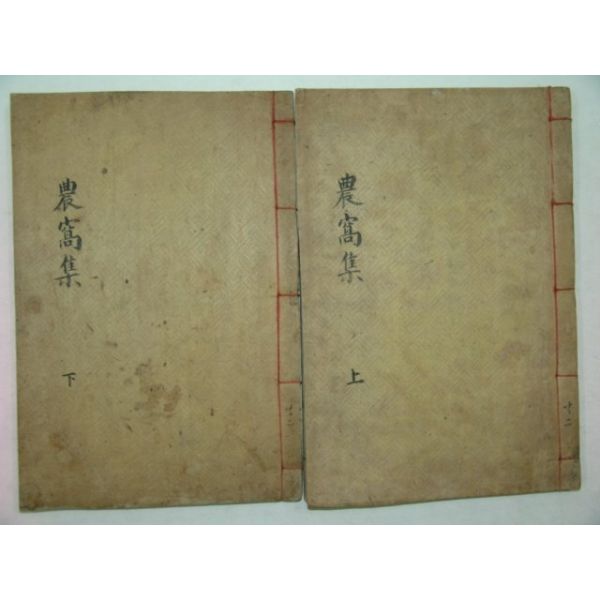 農窩集
上
農窩集
下